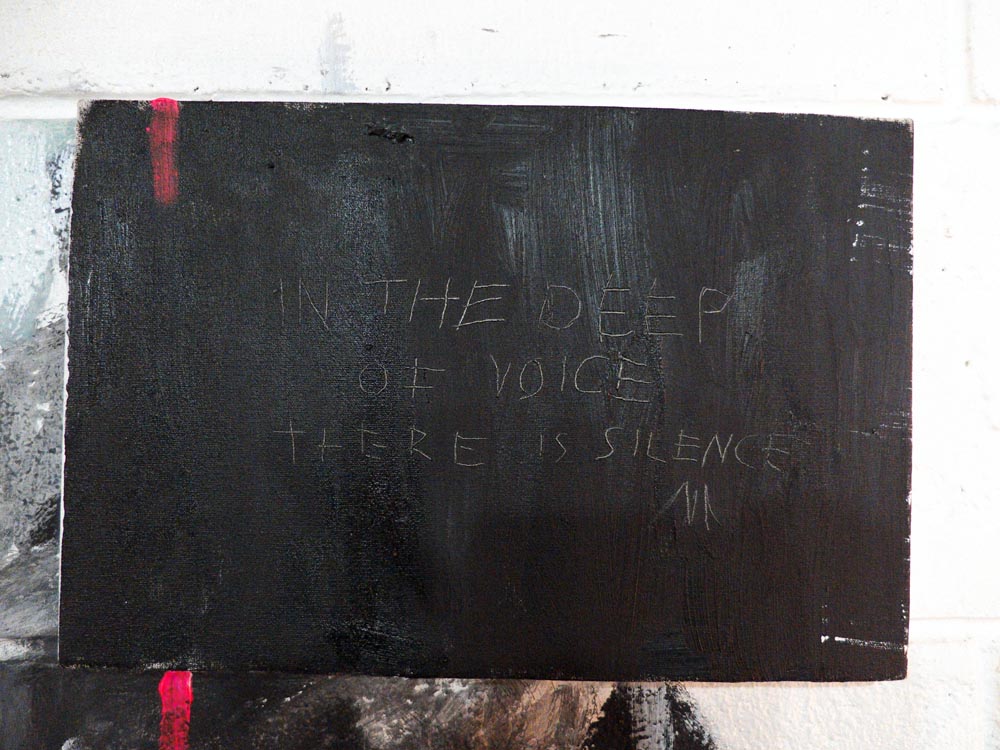 IN THE DEEP
OF VOICE
THERE IS SILENCE